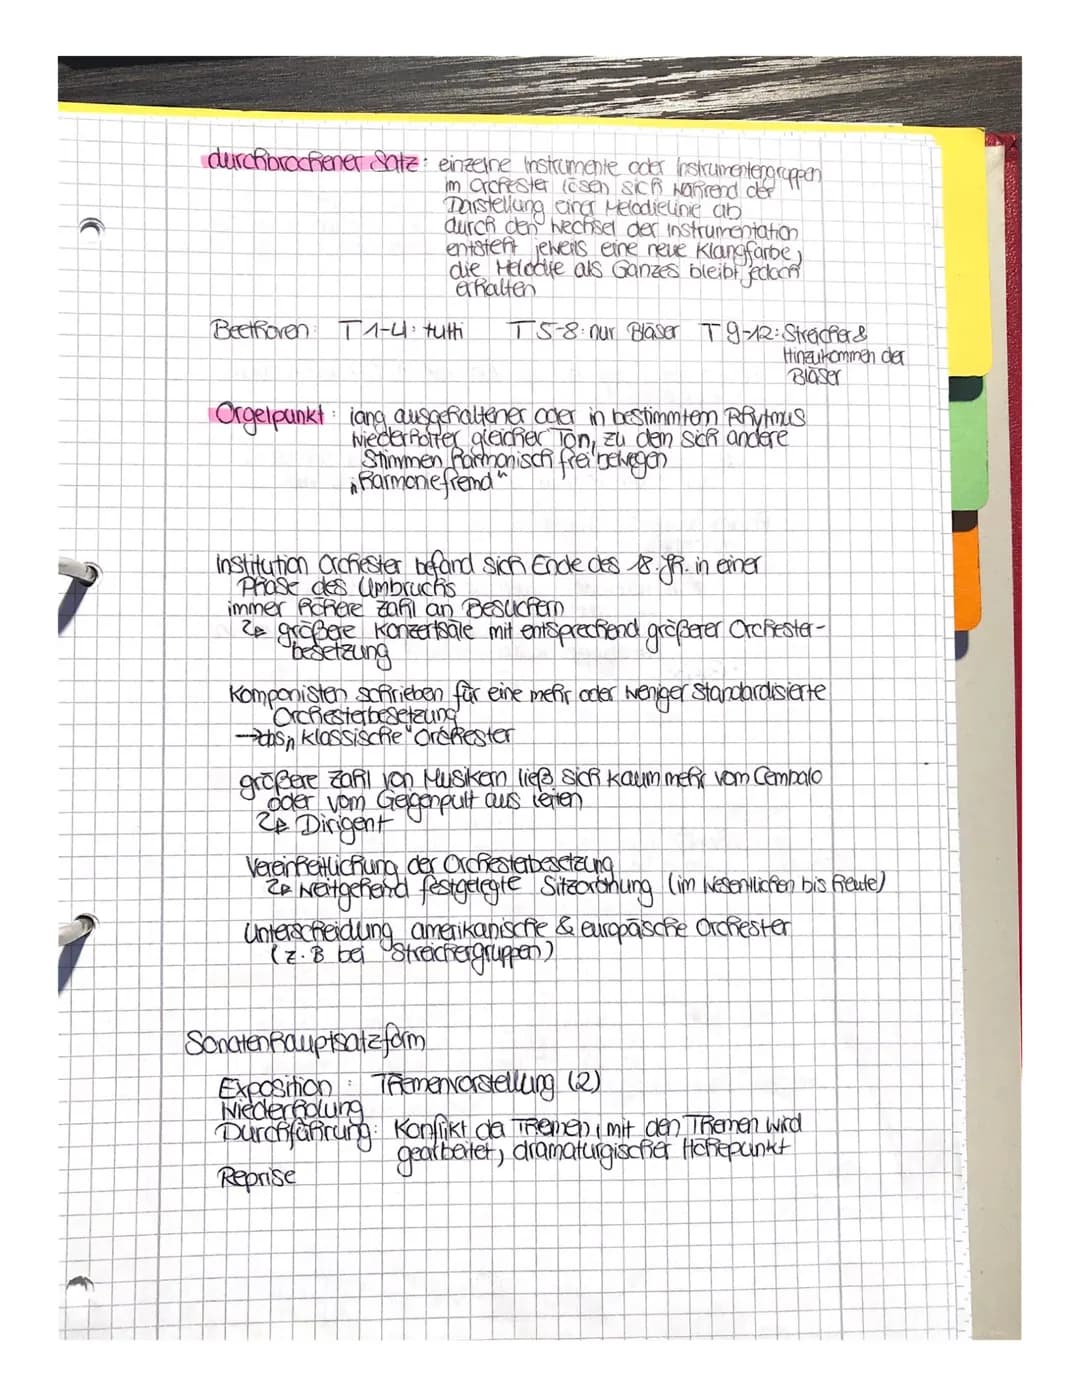 durchbrochener Satz: einzelne Instrumente oder Instrumentengruppen
im Orchester lösen sich während der
Darstellung einer Melodielinie ab
durch den Wechsel der Instrumentation
entsteht jeweils eine neue Klangfarbe,
die Melodie als Ganzes bleibt jedoch
erhalten
Beethoven: T1-4: tutti T5-8: nur Bläser T9-12: Streicher &
Hinzukommen der
Bläser
Orgelpunkt: lang ausgehaltener oder in bestimmtem Rhytmus
wiederholter gleicher Ton, zu dem sich andere
Stimmen harmonisch frei bewegen
„harmoniefremd“
Institution Orchester befand sich Ende des 18. Jh. in einer
Phase des Umbruchs
immer höhere Zahl an Besuchern
↳ größere Konzertsäle mit entsprechend größerer Orchester-
besetzung
Komponisten schrieben für eine mehr oder weniger standardisierte
Orchesterbesetzung
→ das „klassische“ Orchester
größere Zahl von Musikern ließ sich kaum mehr vom Cembalo
oder vom Geigenpult aus leiten
↳ Dirigent
Vereinheitlichung der Orchesterbesetzung
↳ weitgehend festgelegte Sitzordnung (im Wesentlichen bis heute)
Unterscheidung amerikanische & europäische Orchester
(z.B bei Streichergruppen)
Sonatenhauptsatzform
Exposition: Themenvorstellung (2)
Wiederholung
Durchführung: Konflikt der Themen, mit den Themen wird
gearbeitet, dramaturgischer Höhepunkt
Reprise